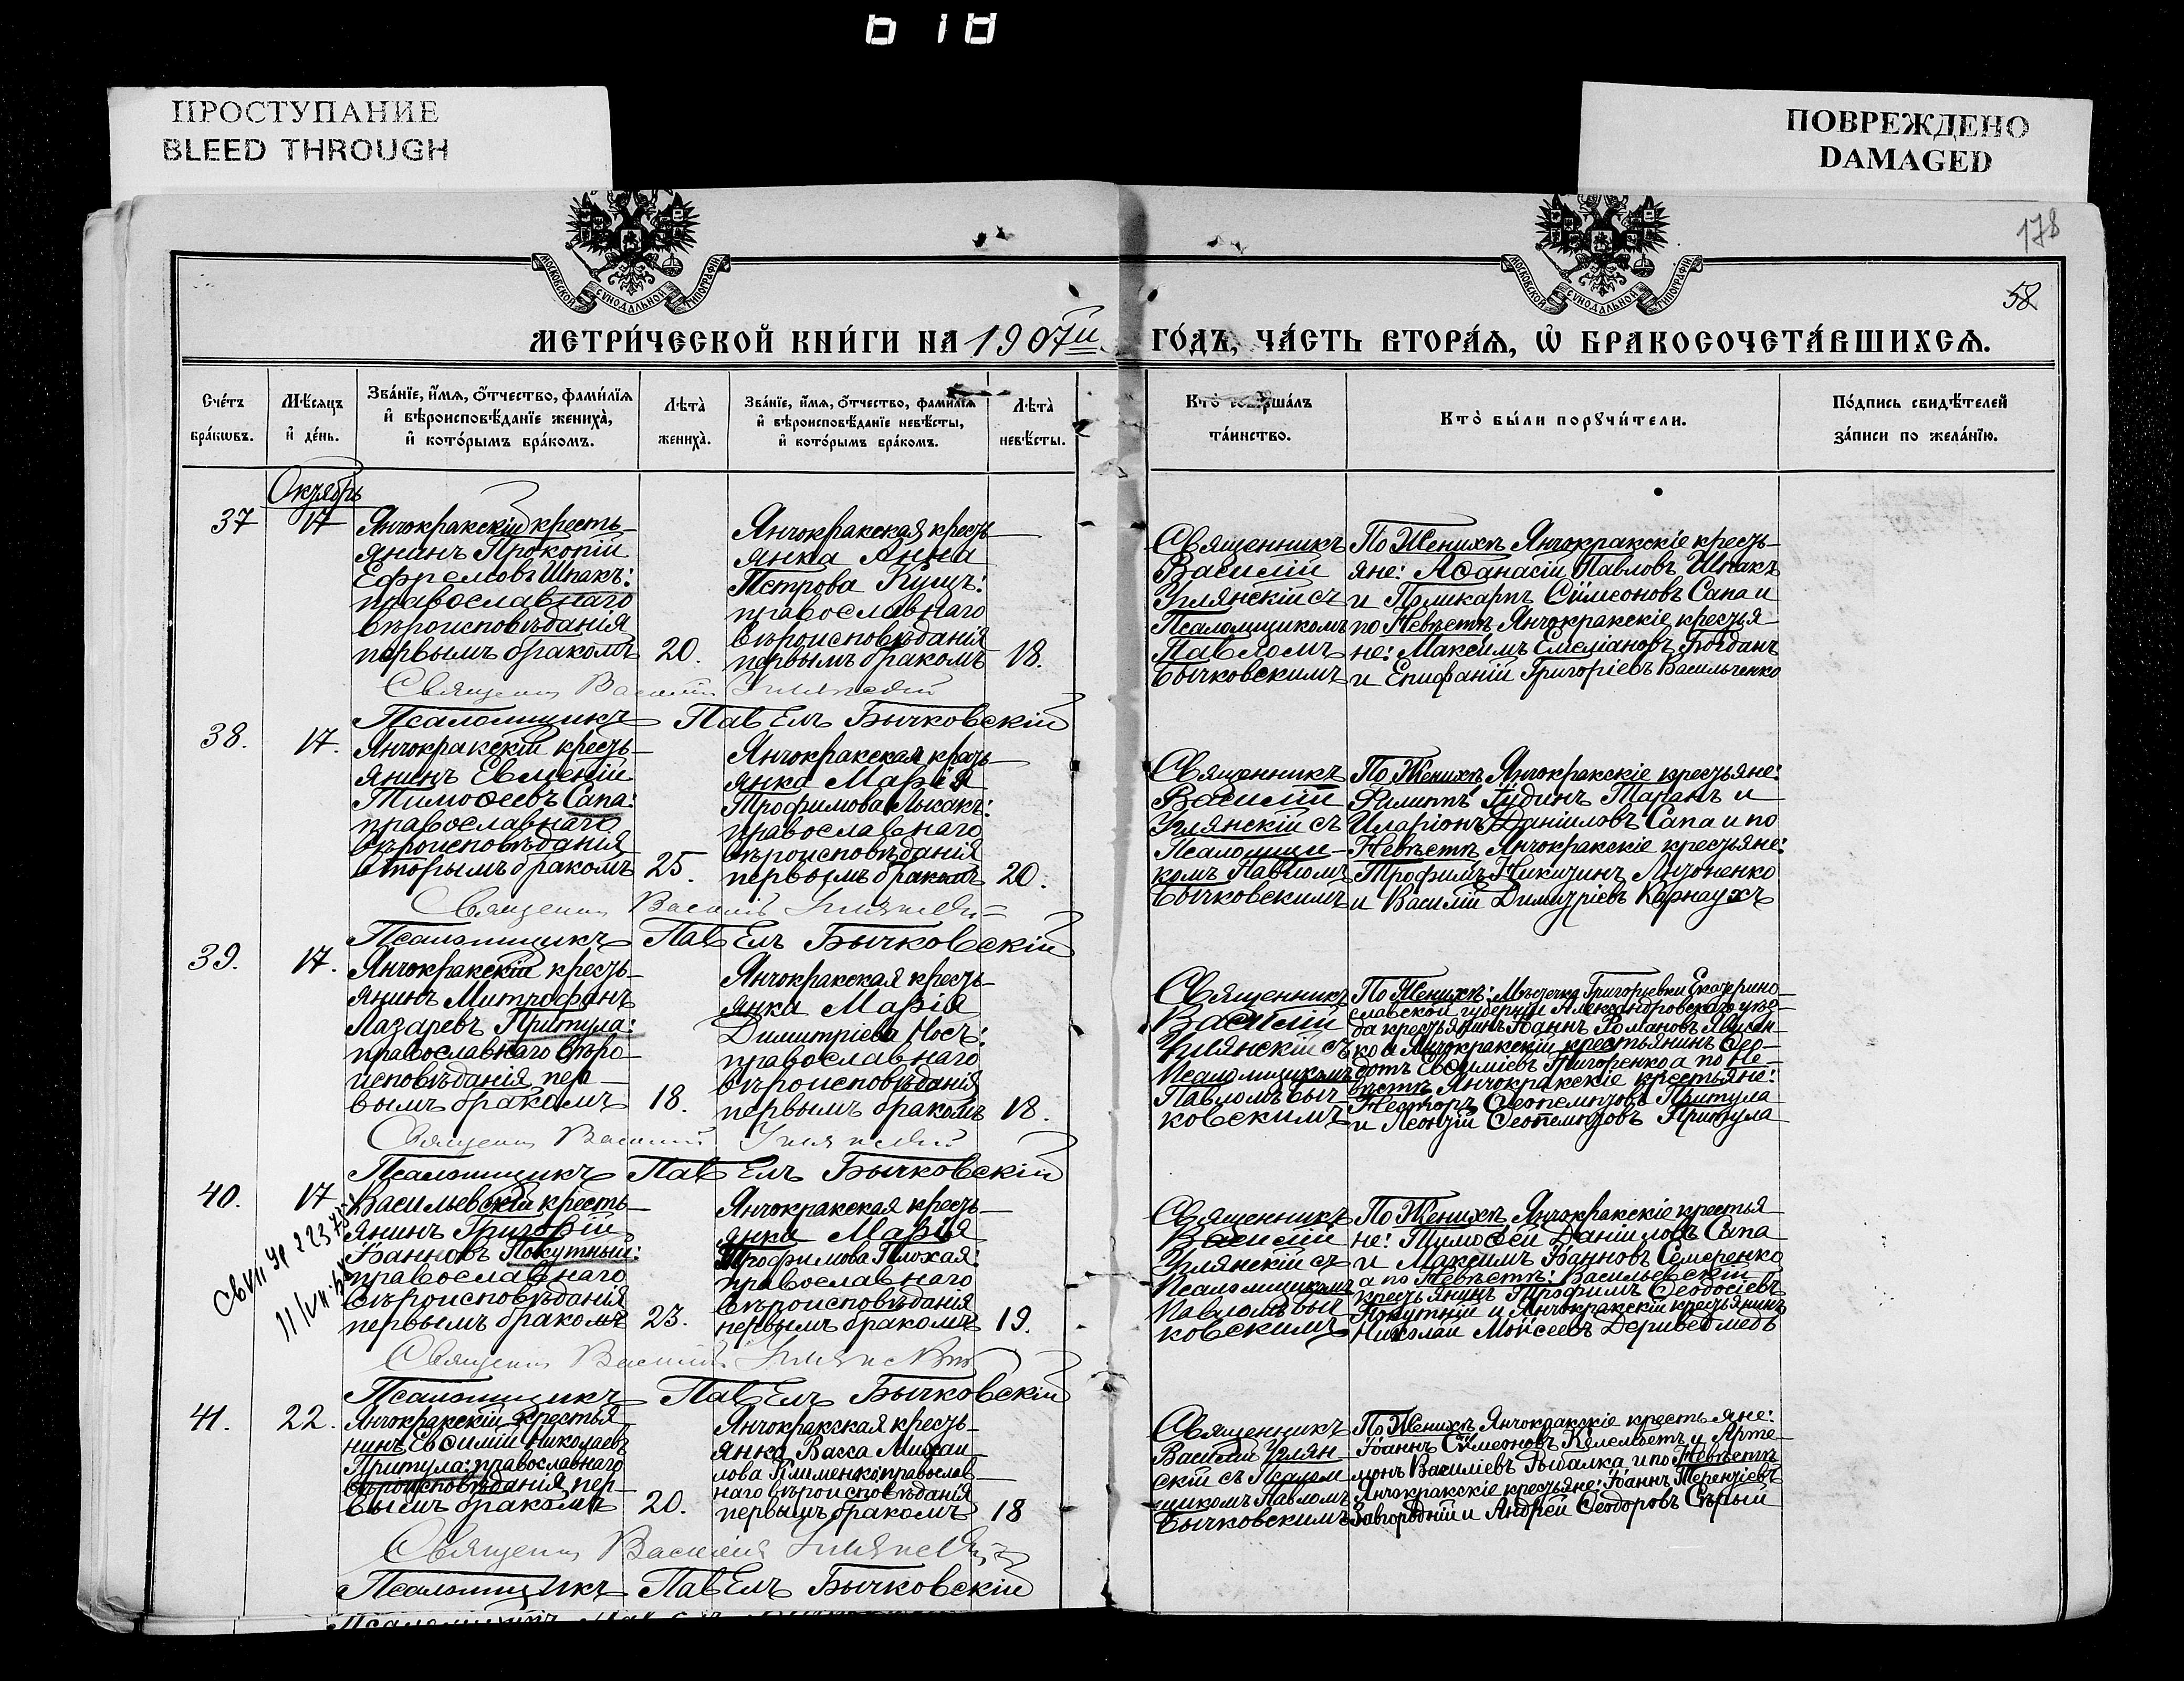 618
ПРОСТУПАНИЕ
BLEED THROUGH
ПОВРЕЖДЕНО
DAMAGED
178
58
МОСКОВСКОЙ СѴНОДАЛЬНОЙ ТИПОГРАФІИ
МОСКОВСКОЙ СѴНОДАЛЬНОЙ ТИПОГРАФІИ
МЕТРИ́ЧЕСКОЙ КНИ́ГИ НА 1907й ГО́ДЪ, ЧА́СТЬ ВТОРА́Ѧ, Ѽ БРАКОСОЧЕТА́ВШИХСѦ.
Сче́тъ бра́кѡвъ.
Мѣ́сяцъ и҆ де́нь.
Зва́нїе, и҆́мѧ, ѻ҆́тчество, фами́лїѧ и҆ вѣроисповѣ́данїе жениха̀, и҆ кото́рымъ бра́комъ.
Лѣта̀ жениха̀.
Зва́нїе, и҆́мѧ, ѻ҆́тчество, фами́лїѧ и҆ вѣроисповѣ́данїе невѣ́сты, и҆ кото́рымъ бра́комъ.
Лѣта̀ невѣ́сты.
Кто̀ соверша́лъ та́инство.
Кто̀ бы́ли порꙋчи́тели.
По́дпись свидѣ́телей за́писи по жела́нїю.
Октябрь
37
17
Янчокракскій кресть-
янинъ Прокопій
Ефремовъ Шпакъ:
православнаго
вѣроисповѣданія
первымъ бракомъ
20.
Янчокракская кресть-
янка Анна
Петрова Кущъ:
православнаго
вѣроисповѣданія
первымъ бракомъ
18.
Священникъ
Василій
Углянскій съ
Псаломщикомъ
Павломъ
Бычковскимъ
По Женихѣ Янчокракскіе кресть-
яне: Аѳанасій Павловъ Шпакъ
и Поликарпъ Сѵмеоновъ Сапа и
по Невѣстѣ Янчокракскіе кресть­я-
не: Максимъ Емеліановъ Богданъ
и Епифаній Григоріевъ Васильченко
Священникъ Василій Углянскій
Псаломщикъ Павелъ Бычковскій
38.
17.
Янчокракскій кресть-
янинъ Евменій
Тимоѳеевъ Сапа:
православнаго
вѣроисповѣданія
вторымъ бракомъ
25.
Янчокракская кресть-
янка Марія
Трофимова Лысакъ:
православнаго
вѣроисповѣданія
первымъ бракомъ
20.
Священникъ
Василій
Углянскій съ
Псаломщи-
комъ Павломъ
Бычковскимъ
По Женихѣ Янчокракскіе крестьяне:
Филиппъ Іудинъ Таранъ и
Иларіонъ Даніиловъ Сапа и по
Невѣстѣ Янчокракскіе крестьяне:
Трофимъ Никитинъ
и Василій Димитріевъ Карнаухъ
Священникъ Василій Углянскій
Псаломщикъ Павелъ Бычковскій
39.
17.
Янчокракскій кресть-
янинъ Митрофанъ
Лазаревъ Притула:
православнаго вѣро-
исповѣданія пер-
вымъ бракомъ
18.
Янчокракская кресть-
янка Марія
Димитріева Носъ:
православнаго
вѣроисповѣданія
первымъ бракомъ
18.
Священникъ
Василій
Углянскій съ
Псаломщикомъ
Павломъ Быч-
ковскимъ
По Женихѣ: Мѣстечка Григорьевки Екатерино-
славской губерніи Александровскаго уѣз-
да крестьянинъ Іоаннъ Романовъ
ко и Янчокракскій крестьянинъ Ѳео-
дотъ Евѳиміевъ Григоренко а по Не-
вѣстѣ Янчокракскіе крестьяне:
Несторъ Ѳеопемптовъ Притула
и Леонтій Ѳеопемптовъ Притула
Священникъ Василій Углянскій
Псаломщикъ Павелъ Бычковскій
40.
17
Васильевскій кресть-
янинъ Григорій
Іоанновъ Покутный:
православнаго
вѣроисповѣданія
первымъ бракомъ
23.
Янчокракская кресть-
янка Марія
Трофимова Плохая:
православнаго
вѣроисповѣданія
первымъ бракомъ
19.
Священникъ
Василій
Углянскій съ
Псаломщикомъ
Павломъ Быч-
ковскимъ
По Женихѣ Янчокракскіе крестья-
не: Тимоѳей Даніиловъ Сапа
и Максимъ Іоанновъ Семеренко
а по Невѣстѣ: Васильевскій
крестьянинъ Трофимъ Ѳеодосіевъ
Покутній и Янчокракскій крестьянинъ
Николай Моисеевъ Дериведмедь
Священникъ Василій Углянскій
Псаломщикъ Павелъ Бычковскій
41.
22.
Янчокракскій крестья-
нинъ Евѳимій Николаевъ
Притула: православнаго
вѣроисповѣданія пер-
вымъ бракомъ
20.
Янчокракская кресть-
янка Васса Михаи-
лова Клименко: православ-
наго вѣроисповѣданія
первымъ бракомъ
18
Священникъ
Василій Углян-
скій съ Псалом-
щикомъ Павломъ
Бычковскимъ
По Женихѣ Янчокракскіе крестьяне:
Іоаннъ Сѵмеоновъ и Арте-
монъ Василіевъ Рыбалка и по Невѣстѣ
Янчокракскіе крестьяне: Іоаннъ Терентіевъ
Завгородній и Андрей Ѳеодоровъ Сѣрый
Священникъ Василій Углянскій
Псаломщикъ Павелъ Бычковскій